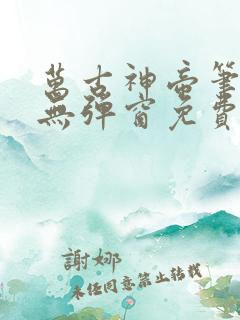 萬古神帝筆
無彈窗免費
謝娜
未经同意禁止转载